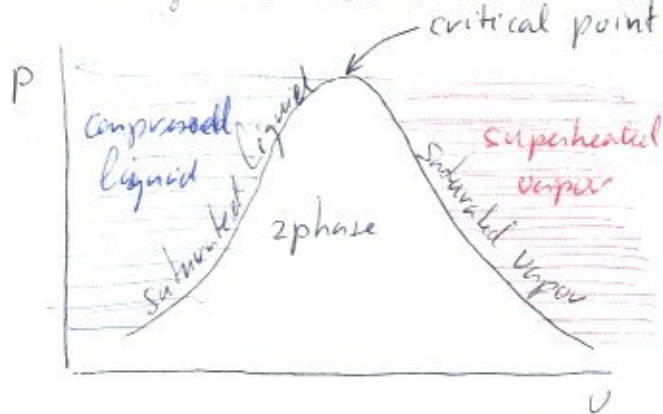 critical point
P
compressed
liquid
saturated liquid
2phase
saturated vapor
superheated
vapor
v